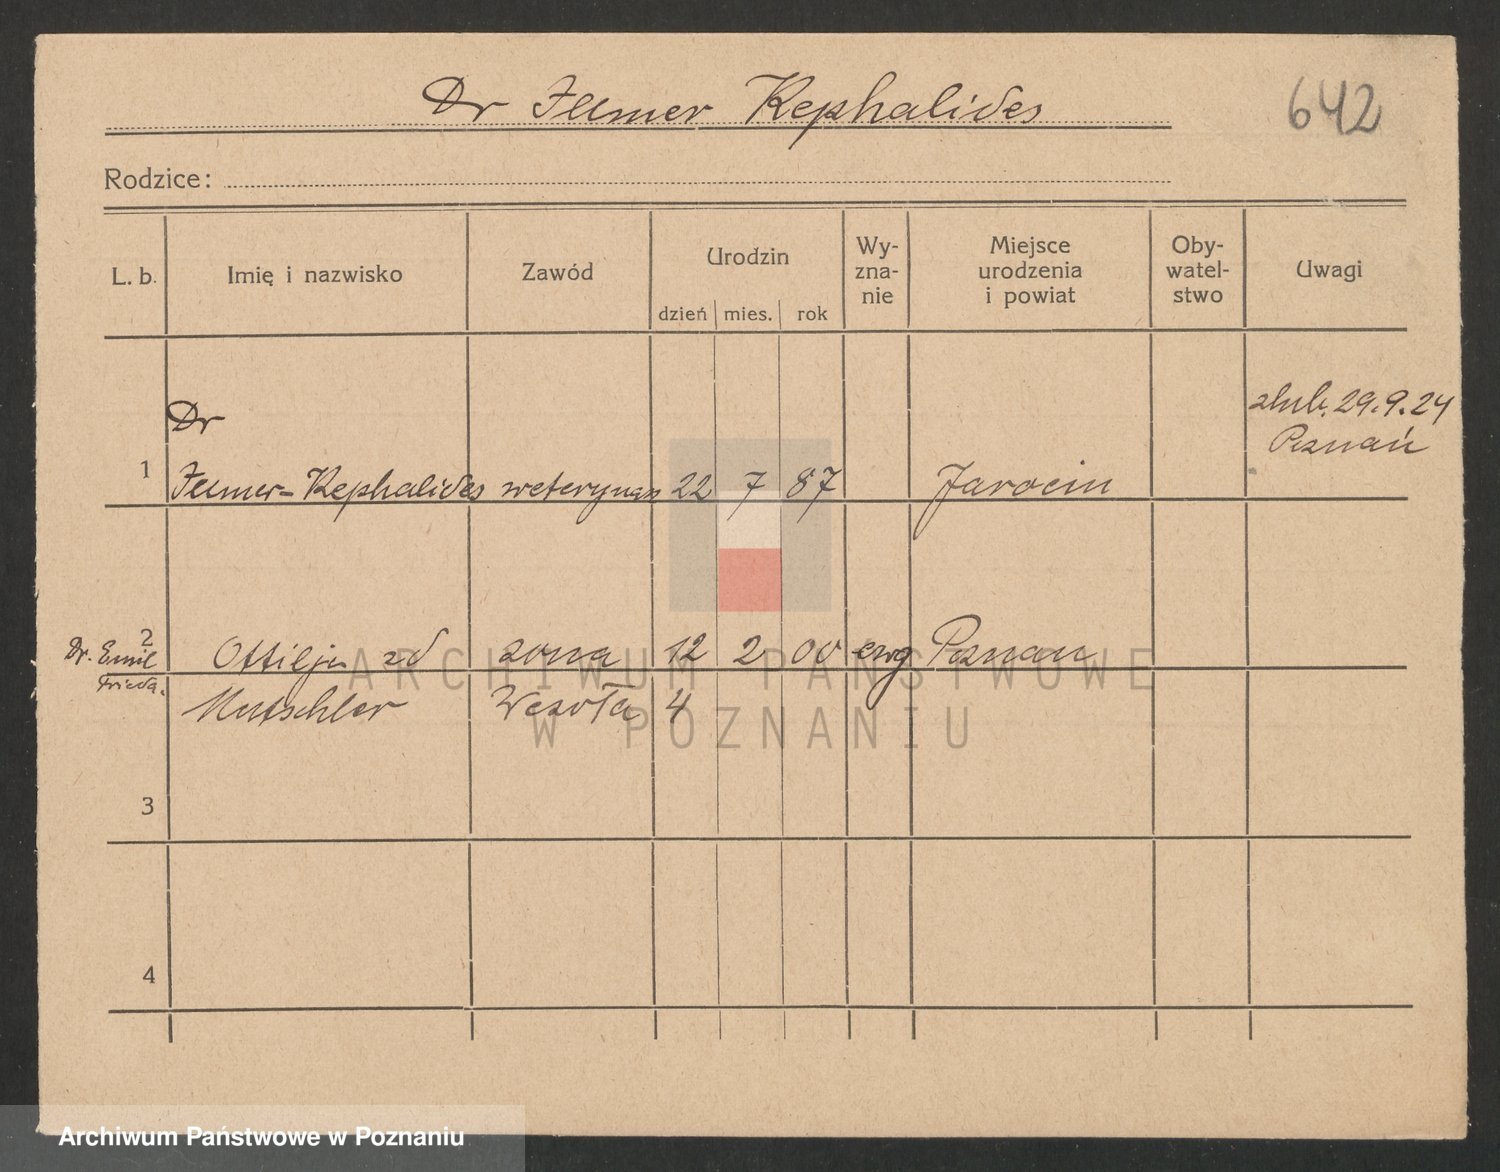 Dr Ilmer Kephalides
642
Rodzice:
L. b. Imię i nazwisko Zawód Urodzin dzień mies. rok Wy-zna-nie Miejsce urodzenia i powiat Oby-watel-stwo Uwagi
ślub. 29.9.24
Poznań
Dr
1 Ilmer-Kephalides weterynarz 22 7 87 Jarocin
2 Ottilja zd żona 12 2 00 ewg Poznan
Dr. Emil
Frieda.
Mutschler Wesoła 4
3
4
ARCHIWUM PAŃSTWOWE
W POZNANIU
Archiwum Państwowe w Poznaniu